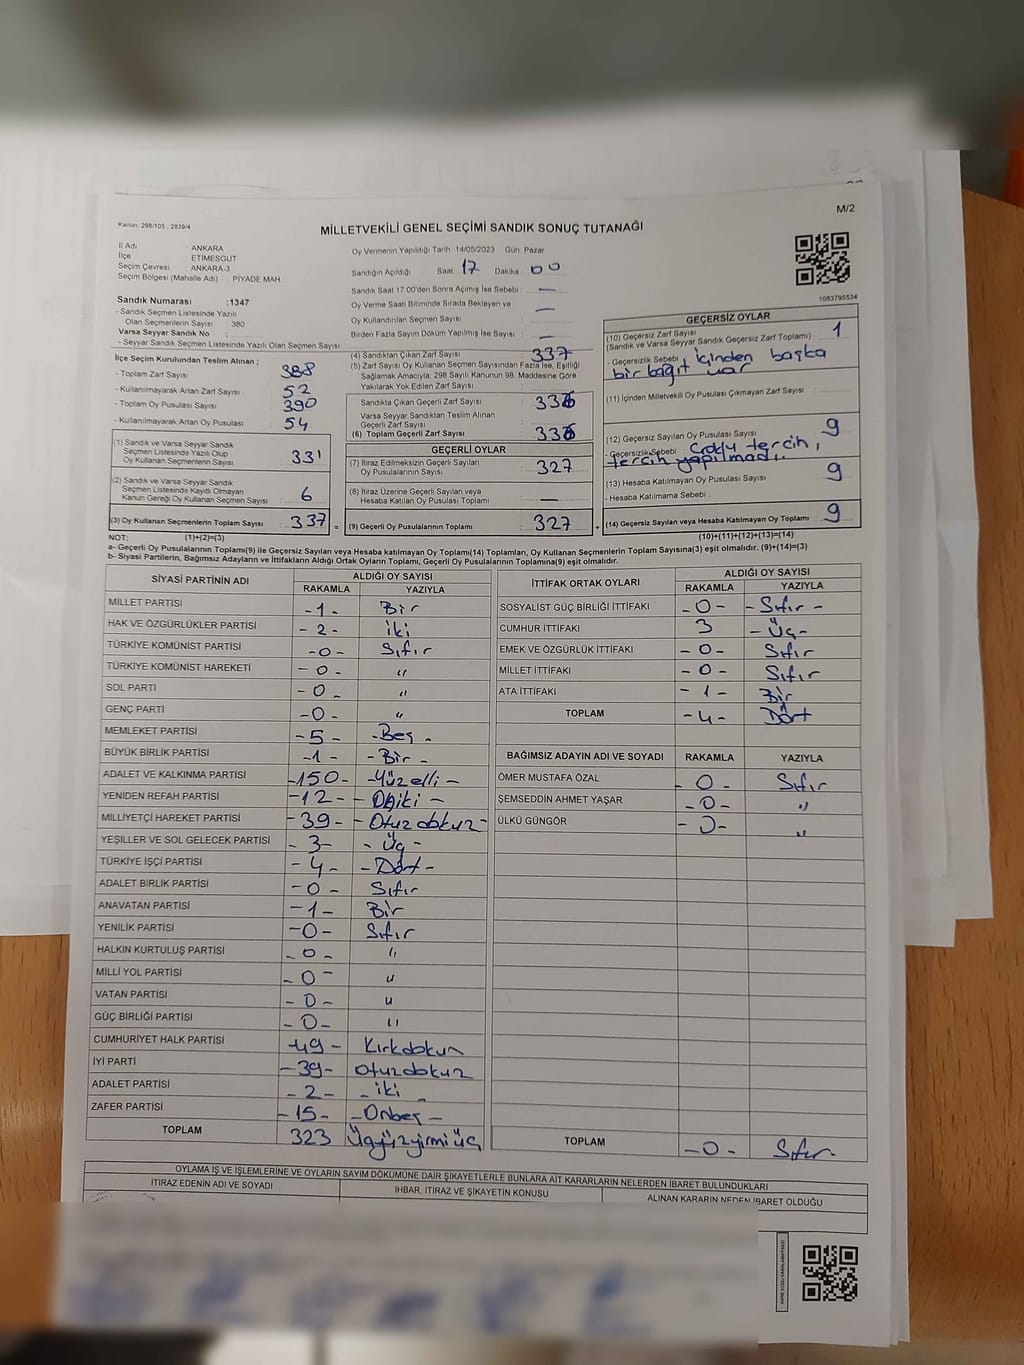 M/2
Kanun: 298/105 ; 2839/4
MİLLETVEKİLİ GENEL SEÇİMİ SANDIK SONUÇ TUTANAĞI
İl Adı : ANKARA
İlçe : ETİMESGUT
Seçim Çevresi : ANKARA-3
Seçim Bölgesi (Mahalle Adı) : PİYADE MAH.
Oy Vermenin Yapıldığı Tarih : 14/05/2023 Gün: Pazar
Sandığın Açıldığı Saat 17 Dakika : 00
Sandık Saat 17.00'den Sonra Açılmış İse Sebebi : —
Oy Verme Saati Bitiminde Sırada Bekleyen ve
Oy Kullandırılan Seçmen Sayısı : —
Birden Fazla Sayım Döküm Yapılmış İse Sayısı : —
1083795534
Sandık Numarası : 1347
- Sandık Seçmen Listesinde Yazılı
Olan Seçmenlerin Sayısı : 380
Varsa Seyyar Sandık No :
- Seyyar Sandık Seçmen Listesinde Yazılı Olan Seçmen Sayısı :
İlçe Seçim Kurulundan Teslim Alınan ;
- Toplam Zarf Sayısı : 388
- Kullanılmayarak Artan Zarf Sayısı : 52
- Toplam Oy Pusulası Sayısı : 390
- Kullanılmayarak Artan Oy Pusulası : 54
(1) Sandık ve Varsa Seyyar Sandık
Seçmen Listesinde Yazılı Olup
Oy Kullanan Seçmenlerin Sayısı : 331
(2) Sandık ve Varsa Seyyar Sandık
Seçmen Listesinde Kayıtlı Olmayan
Kanun Gereği Oy Kullanan Seçmen Sayısı : 6
(3) Oy Kullanan Seçmenlerin Toplam Sayısı : 337 =
(4) Sandıktan Çıkan Zarf Sayısı : 337
(5) Zarf Sayısı Oy Kullanan Seçmen Sayısından Fazla İse, Eşitliği
Sağlamak Amacıyla; 298 Sayılı Kanunun 98. Maddesine Göre
Yakılarak Yok Edilen Zarf Sayısı :
Sandıkta Çıkan Geçerli Zarf Sayısı : 336
Varsa Seyyar Sandıktan Teslim Alınan
Geçerli Zarf Sayısı :
(6) Toplam Geçerli Zarf Sayısı : 336
GEÇERLİ OYLAR
(7) İtiraz Edilmeksizin Geçerli Sayılan
Oy Pusulalarının Sayısı : 327
(8) İtiraz Üzerine Geçerli Sayılan veya
Hesaba Katılan Oy Pusulası Toplamı : —
(9) Geçerli Oy Pusulalarının Toplamı : 327 +
GEÇERSİZ OYLAR
(10) Geçersiz Zarf Sayısı : 1
(Sandık ve Varsa Seyyar Sandık Geçersiz Zarf Toplamı)
- Geçersizlik Sebebi : içinden başka
bir kağıt var
(11) İçinden Milletvekili Oy Pusulası Çıkmayan Zarf Sayısı :
(12) Geçersiz Sayılan Oy Pusulası Sayısı : 9
- Geçersizlik Sebebi : Çoklu tercih,
tercih yapılmadı.
(13) Hesaba Katılmayan Oy Pusulası Sayısı : 9
- Hesaba Katılmama Sebebi :
(14) Geçersiz Sayılan veya Hesaba Katılmayan Oy Toplamı : 9
NOT: (1)+(2)=(3) (10)+(11)+(12)+(13)=(14)
a- Geçerli Oy Pusulalarının Toplamı(9) ile Geçersiz Sayılan veya Hesaba katılmayan Oy Toplamı(14) Toplamları, Oy Kullanan Seçmenlerin Toplam Sayısına(3) eşit olmalıdır. (9)+(14)=(3)
b- Siyasi Partilerin, Bağımsız Adayların ve İttifakların Aldığı Ortak Oyların Toplamı, Geçerli Oy Pusulalarının Toplamına(9) eşit olmalıdır.
SİYASİ PARTİNİN ADI ALDIĞI OY SAYISI
RAKAMLA YAZIYLA
MİLLET PARTİSİ -1- Bir
HAK VE ÖZGÜRLÜKLER PARTİSİ -2- iki
TÜRKİYE KOMÜNİST PARTİSİ -0- Sıfır
TÜRKİYE KOMÜNİST HAREKETİ -0- "
SOL PARTİ -0- "
GENÇ PARTİ -0- "
MEMLEKET PARTİSİ -5- -Beş-
BÜYÜK BİRLİK PARTİSİ -1- -Bir-
ADALET VE KALKINMA PARTİSİ -150- -Yüzelli-
YENİDEN REFAH PARTİSİ -12- -Oniki-
MİLLİYETÇİ HAREKET PARTİSİ -39- -Otuzdokuz-
YEŞİLLER VE SOL GELECEK PARTİSİ -3- -Üç-
TÜRKİYE İŞÇİ PARTİSİ -4- -Dört-
ADALET BİRLİK PARTİSİ -0- Sıfır
ANAVATAN PARTİSİ -1- Bir
YENİLİK PARTİSİ -0- Sıfır
HALKIN KURTULUŞ PARTİSİ -0- "
MİLLİ YOL PARTİSİ -0- "
VATAN PARTİSİ -0- "
GÜÇ BİRLİĞİ PARTİSİ -0- "
CUMHURİYET HALK PARTİSİ -49- Kırkdokuz
İYİ PARTİ -39- otuzdokuz
ADALET PARTİSİ -2- -iki-
ZAFER PARTİSİ -15- -Onbeş-
TOPLAM 323 Üçyüzyirmiüç
İTTİFAK ORTAK OYLARI ALDIĞI OY SAYISI
RAKAMLA YAZIYLA
SOSYALİST GÜÇ BİRLİĞİ İTTİFAKI -0- -Sıfır-
CUMHUR İTTİFAKI 3 -Üç-
EMEK VE ÖZGÜRLÜK İTTİFAKI -0- Sıfır
MİLLET İTTİFAKI -0- Sıfır
ATA İTTİFAKI -1- Bir
TOPLAM -4- Dört
BAĞIMSIZ ADAYIN ADI VE SOYADI RAKAMLA YAZIYLA
ÖMER MUSTAFA ÖZAL -0- Sıfır
ŞEMSEDDİN AHMET YAŞAR -0- "
ÜLKÜ GÜNGÖR -0- "
TOPLAM -0- Sıfır-
OYLAMA İŞ VE İŞLEMLERİNE VE OYLARIN SAYIM DÖKÜMÜNE DAİR ŞİKAYETLERLE BUNLARA AİT KARARLARIN NELERDEN İBARET BULUNDUKLARI
İTİRAZ EDENİN ADI VE SOYADI İHBAR, İTİRAZ VE ŞİKAYETİN KONUSU ALINAN KARARIN NEDEN İBARET OLDUĞU